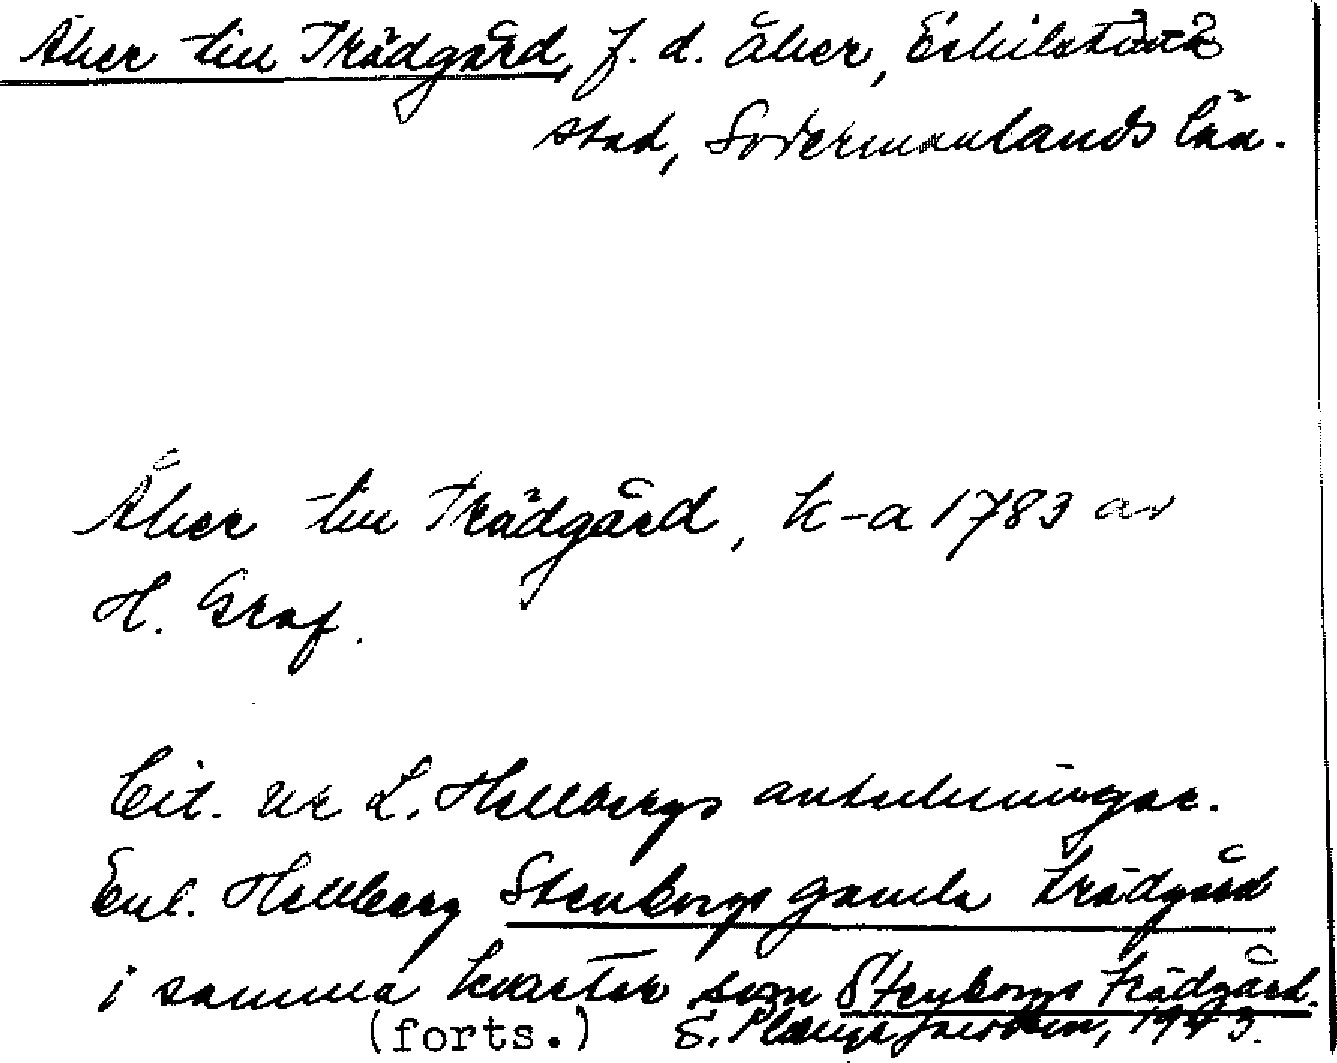 Åker till Trädgård, f. d. åker, Eskilstuna
stad, Södermanlands län.
Åker till Trädgård, k-a 1783 av
H. Graf.
Cit. ur L. Hellbergs anteckningar.
Enl. Hellberg Stenborgs gamla trädgård
i samma kvarter som Stenborgs trädgård.
(forts.) S. 1973.